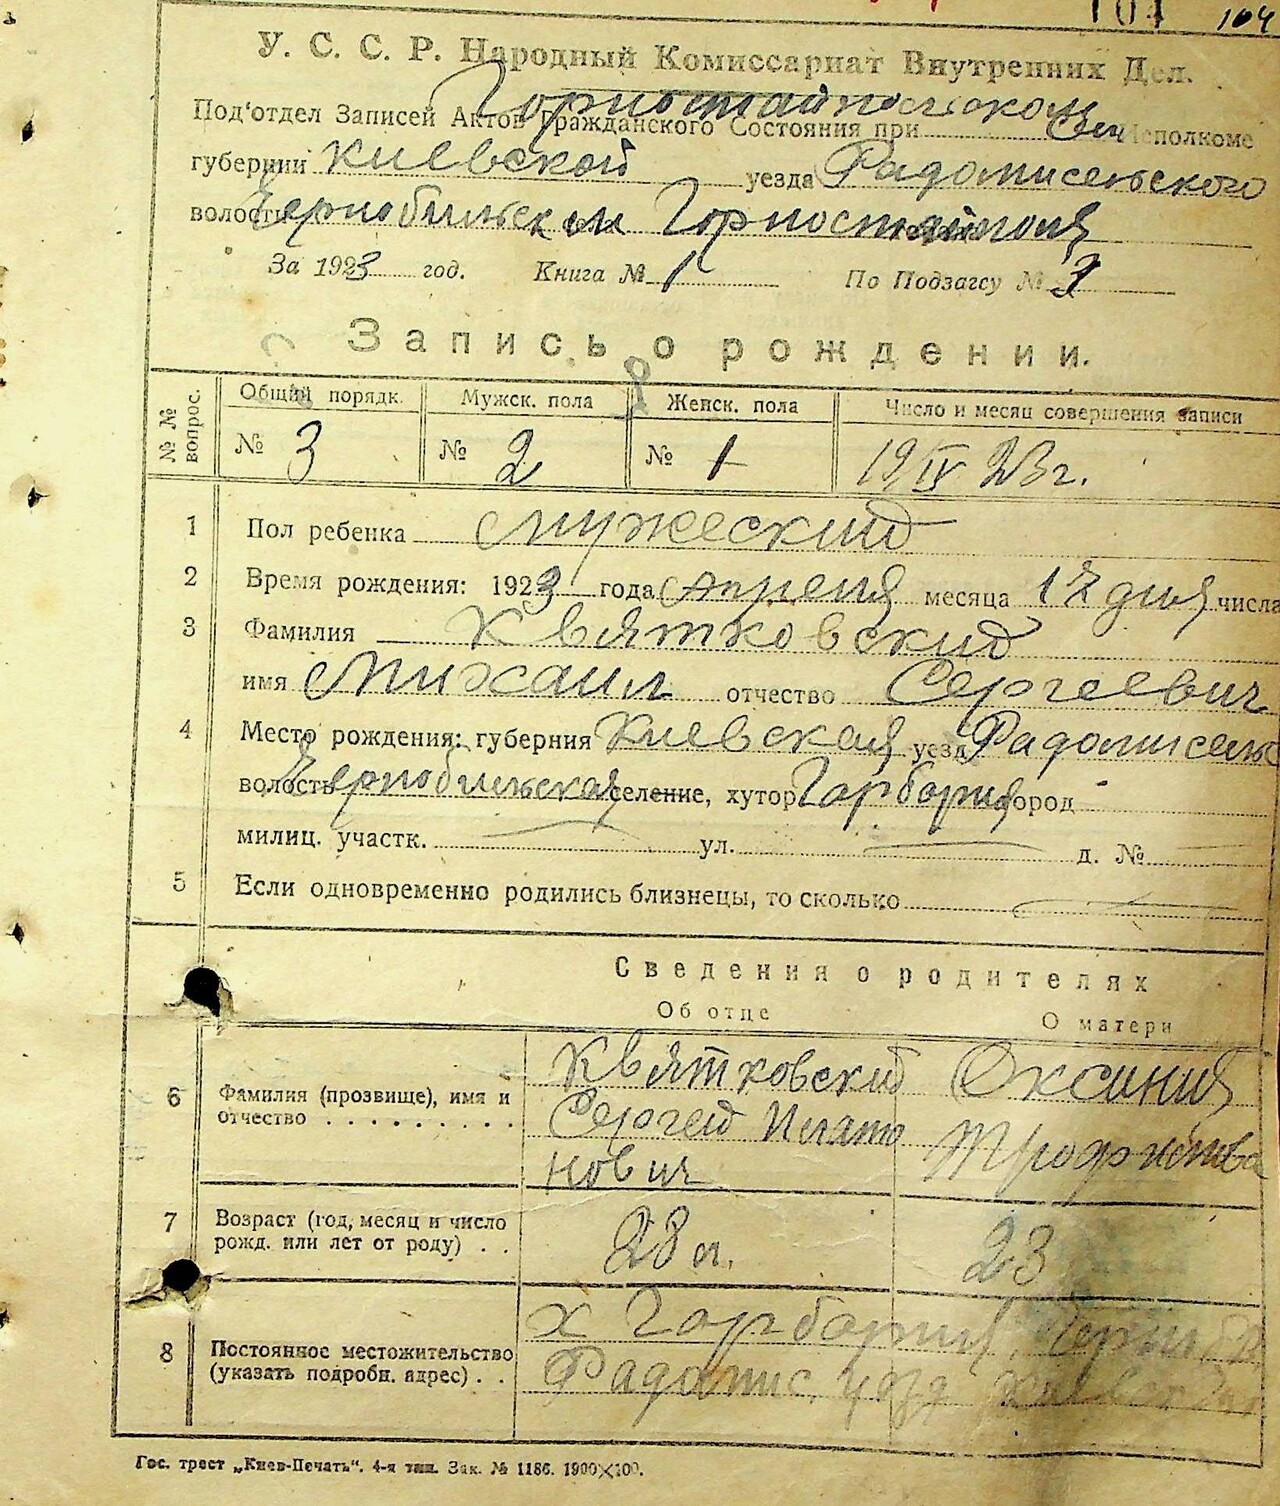 104 104
У. С. С. Р. Народный Комиссариат Внутренних Дел.
Под'отдел Записей Актов Гражданского Состояния при Горностайпольском Сельисполкоме
губернии Киевской уезда Радомисельского
волости Чернобильской Горностайполя
За 1923 год. Книга № 1 По Подзагсу № 3
Запись о рождении.
№№ вопрос. Общий порядк. Мужск. пола Женск. пола Число и месяц совершения записи
№ 3 № 2 № 1 19/IV 23 г.
1 Пол ребенка Мужеский
2 Время рождения: 1923 года Апреля месяца 17 дня числа
3 Фамилия Квятковский
имя Михаил отчество Сергеевич
4 Место рождения: губерния Киевская уезд Радомисельс
волость Чернобильская селение, хутор Гарбария город
милиц. участк. ул. д. №
5 Если одновременно родились близнецы, то сколько
Сведения о родителях
Об отце О матери
6 Фамилия (прозвище), имя и отчество Квятковский Сергей Платонович Оксиния Трофимова
7 Возраст (год, месяц и число рожд. или лет от роду) 28 л. 23
8 Постоянное местожительство (указать подробн. адрес) х Гарбария
Радомис. уезд Киевской
Гос. трест „Киев-Печать“. 4-я тип. Зак. № 1186. 1900×100.